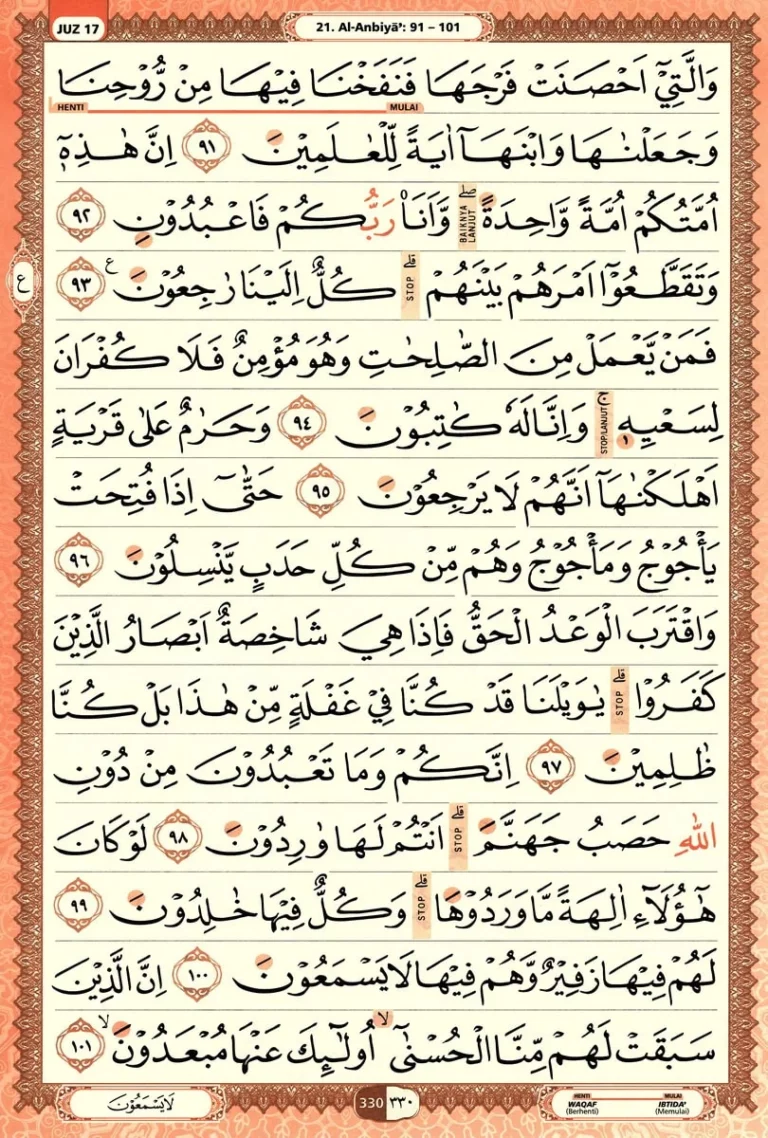 JUZ 17
21. Al-Anbiyā': 91 – 101
وَالَّتِيْٓ اَحْصَنَتْ فَرْجَهَا فَنَفَخْنَا فِيْهَا مِنْ رُّوْحِنَا
MULAI HENTI
وَجَعَلْنٰهَا وَابْنَهَآ اٰيَةً لِّلْعٰلَمِيْنَ ٩١ اِنَّ هٰذِهٖٓ
اُمَّتُكُمْ اُمَّةً وَّاحِدَةًۖ BAIKNYA LANJUT وَّاَنَا۠ رَبُّكُمْ فَاعْبُدُوْنِ ٩٢
وَتَقَطَّعُوْٓا اَمْرَهُمْ بَيْنَهُمْۗ STOP كُلٌّ اِلَيْنَا رٰجِعُوْنَ ࣖ ٩٣
ع
فَمَنْ يَّعْمَلْ مِنَ الصّٰلِحٰتِ وَهُوَ مُؤْمِنٌ فَلَا كُفْرَانَ
لِسَعْيِهٖۚ STOP/LANJUT وَاِنَّا لَهٗ كٰتِبُوْنَ ٩٤ وَحَرٰمٌ عَلٰى قَرْيَةٍ
اَهْلَكْنٰهَآ اَنَّهُمْ لَا يَرْجِعُوْنَ ٩٥ حَتّٰىٓ اِذَا فُتِحَتْ
يَأْجُوْجُ وَمَأْجُوْجُ وَهُمْ مِّنْ كُلِّ حَدَبٍ يَّنْسِلُوْنَ ٩٦
وَاقْتَرَبَ الْوَعْدُ الْحَقُّ فَاِذَا هِيَ شَاخِصَةٌ اَبْصَارُ الَّذِيْنَ
كَفَرُوْاۗ STOP يٰوَيْلَنَا قَدْ كُنَّا فِيْ غَفْلَةٍ مِّنْ هٰذَا بَلْ كُنَّا
ظٰلِمِيْنَ ٩٧ اِنَّكُمْ وَمَا تَعْبُدُوْنَ مِنْ دُوْنِ
اللّٰهِ حَصَبُ جَهَنَّمَۗ STOP اَنْتُمْ لَهَا وٰرِدُوْنَ ٩٨ لَوْ كَانَ
هٰٓؤُلَاۤءِ اٰلِهَةً مَّا وَرَدُوْهَاۗ STOP وَكُلٌّ فِيْهَا خٰلِدُوْنَ ٩٩
لَهُمْ فِيْهَا زَفِيْرٌ وَّهُمْ فِيْهَا لَا يَسْمَعُوْنَ ١٠٠ اِنَّ الَّذِيْنَ
سَبَقَتْ لَهُمْ مِّنَّا الْحُسْنٰىٓۙ اُولٰۤىِٕكَ عَنْهَا مُبْعَدُوْنَۙ ١٠١
لَا يَسْمَعُوْنَ
330 ٣٣٠
HENTI MULAI
WAQAF IBTIDA'
(Berhenti) (Memulai)